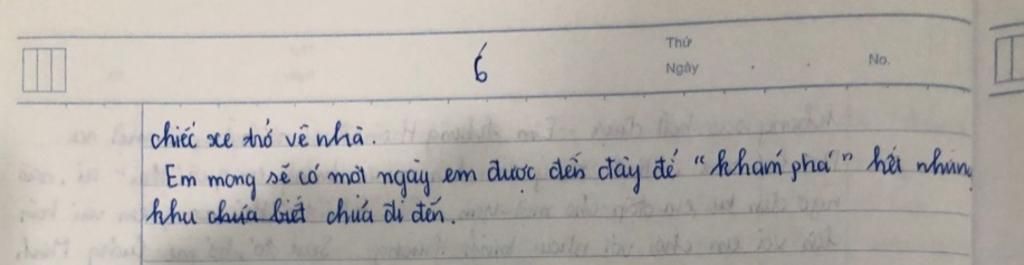 6
Thứ
Ngày
No.
chiếc xe thở về nhà.
Em mong sẽ có một ngày em được đến đây để “khám phá” hết những
khu chưa biết chưa đi đến.